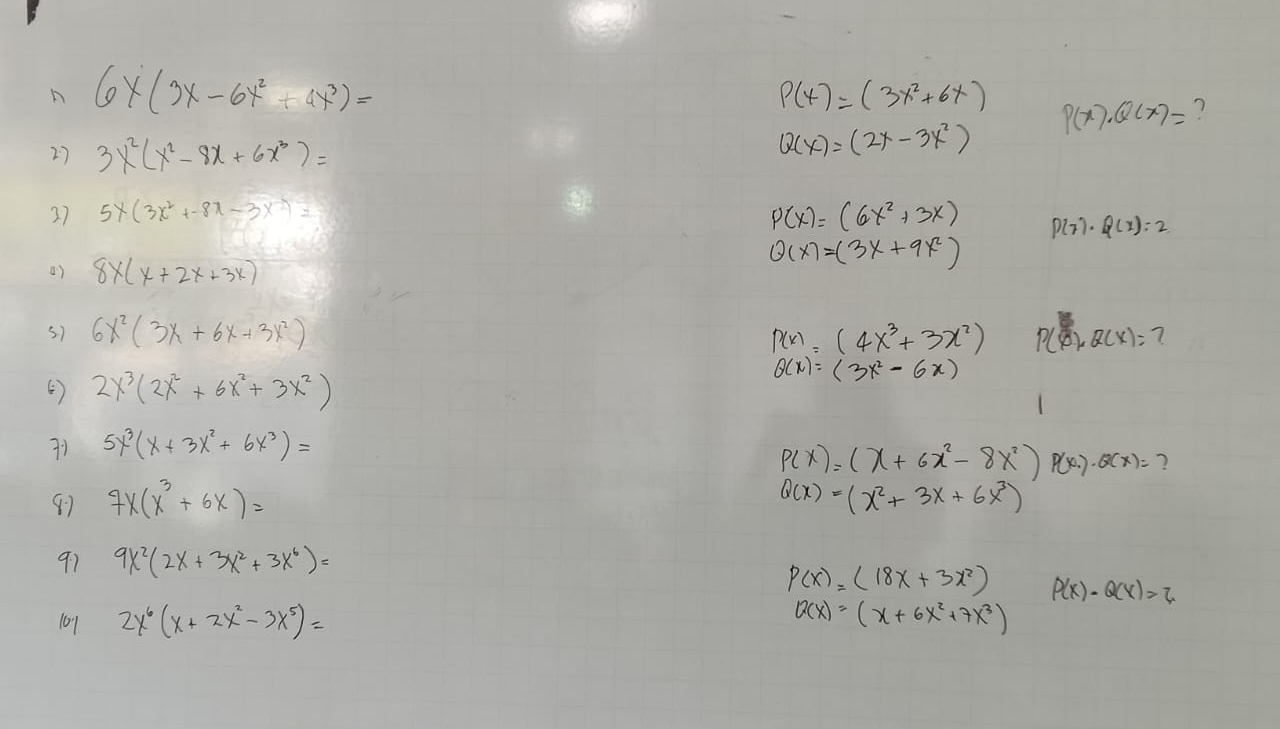 1) 6x(3x - 6x² + 4x³) =
2) 3x²(x² - 8x + 6x³) =
3) 5x(3x² + -8x - 3x
8x(x + 2x + 3x)
5) 6x²(3x + 6x + 3x²)
6) 2x³(2x² + 6x² + 3x²)
7) 5x³(x + 3x² + 6x³) =
8) 7x(x³ + 6x) =
9) 9x²(2x + 3x² + 3x⁶) =
10) 2x⁶(x + 2x² - 3x⁵) =
P(x) = (3x² + 6x)
Q(x) = (2x - 3x²)
P(x).Q(x) = ?
P(x) = (6x² + 3x)
Q(x) = (3x + 9x²)
P(x).Q(x) = ?
P(x) = (4x³ + 3x²)
Q(x) = (3x² - 6x)
Q(x) = ?
P(x) = (x + 6x² - 8x²)
Q(x) = (x² + 3x + 6x³)
P(x).Q(x) = ?
P(x) = (18x + 3x²)
Q(x) = (x + 6x² + 7x³)
P(x) - Q(x) = ?